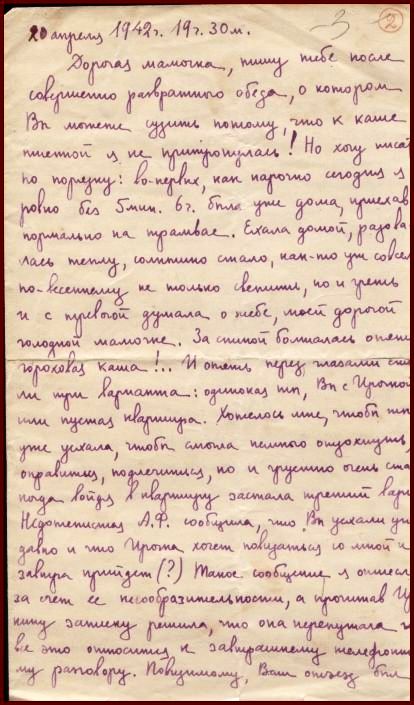 3 2
20 апреля 1942г. 19ч. 30м.
Дорогая мамочка, пишу тебе после
совершенно развратного обеда, о котором
Вы можете судить потому, что к каше
пшенной я не притронулась! Но хочу писать
по порядку: во-первых, как нарочно сегодня я
ровно без 5 мин. 6ч. была уже дома, приехав
нормально на трамвае. Ехала домой, радова
лась теплу, солнышко стало, как-то уж совсем
по-весеннему не только светить, но и греть
и с тревогой думала о тебе, моей дорогой
голодной мамочке. За спиной болталась
гороховая каша!.. И опять перед глазами
ли три варианта: одинокая ты, Вы с Ирочкой
или пустая квартира. Хотелось мне, чтобы ты
уже уехала, чтобы смогла немного отдохнуть,
оправиться, подлечиться, но и грустно очень ста
когда войдя в квартиру застала третий вари
А.Ф. сообщила, что Вы уехали уже
давно и что Ирочка хочет повидаться со мной и
завтра придет (?) Такое сообщение я отнесла
за счет ее несообразительности, а прочитав
кину записку решила, что она перепутала и
все это относится к завтрашнему телефонно
му разговору. Повидимому, Ваш отъезд был